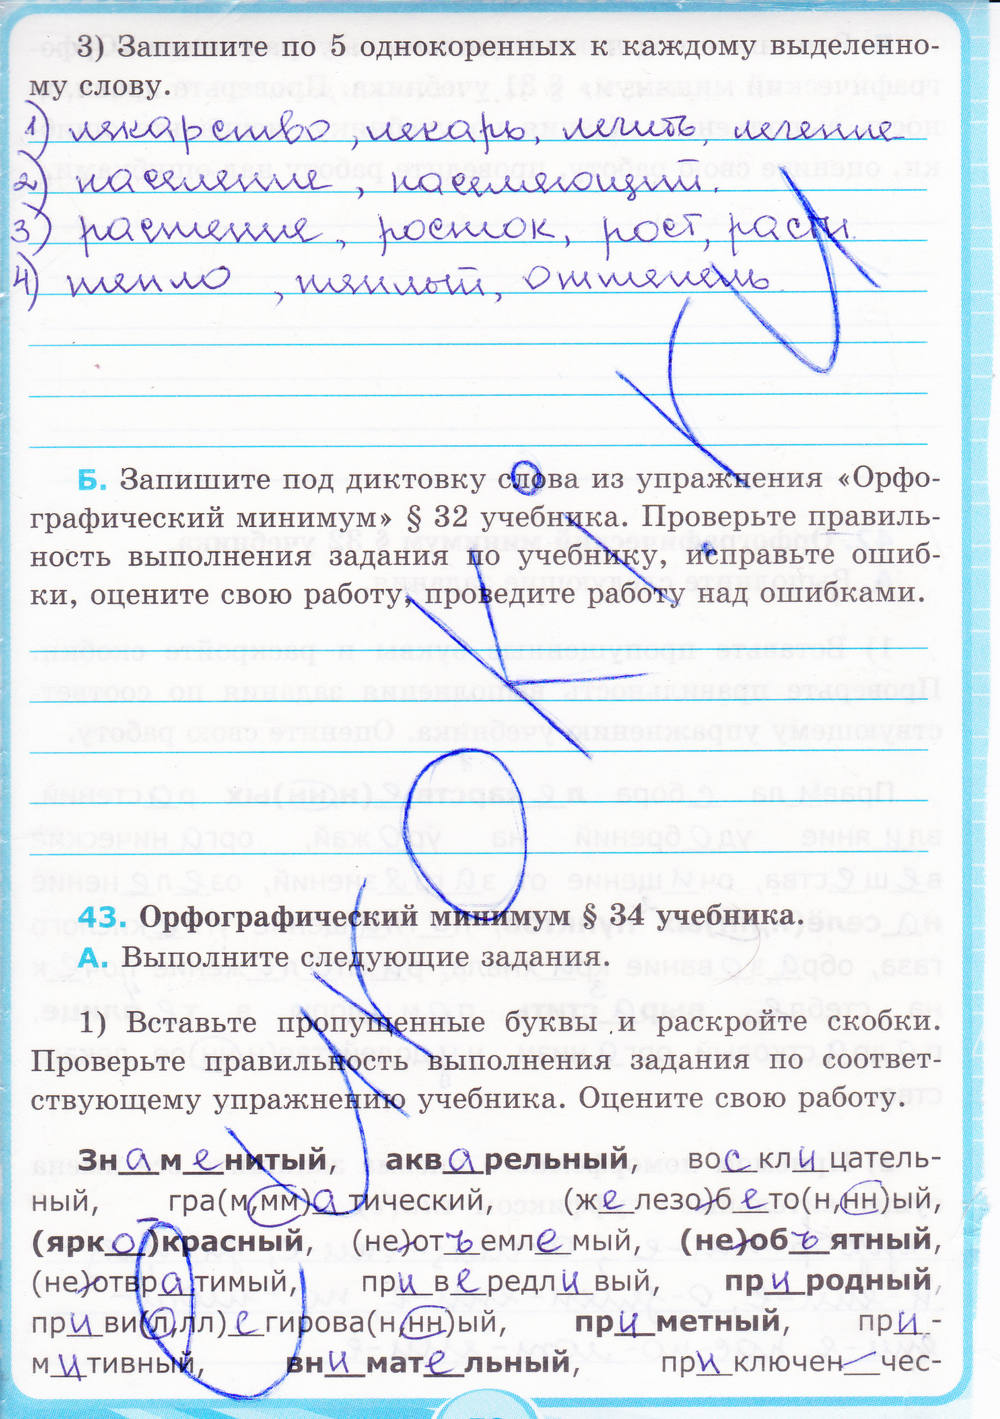 3) Запишите по 5 однокоренных к каждому выделенно-
му слову.
1) лекарство, лекарь, лечить, лечение
2) население, населяющий.
3) растение, росток, рост, расти.
4) тепло, теплый, оттепель
Б. Запишите под диктовку слова из упражнения «Орфо-
графический минимум» § 32 учебника. Проверьте правиль-
ность выполнения задания по учебнику, исправьте ошиб-
ки, оцените свою работу, проведите работу над ошибками.
43. Орфографический минимум § 34 учебника.
А. Выполните следующие задания.
1) Вставьте пропущенные буквы и раскройте скобки.
Проверьте правильность выполнения задания по соответ-
ствующему упражнению учебника. Оцените свою работу.
Знаменитый, акварельный, восклицатель-
ный, гра(м,мм)атический, (железо)бето(н,нн)ый,
(ярко)красный, (не)отъемлемый, (не)объятный,
(не)отвратимый, привередливый, природный,
приви(л,лл)егирова(н,нн)ый, приметный, при-
митивный, внимательный, приключенчес-